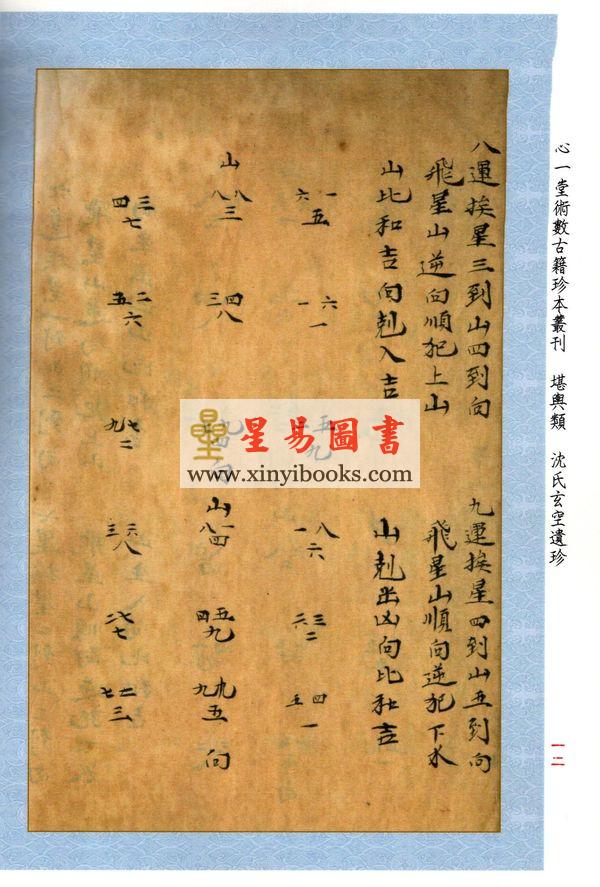 心一堂術數古籍珍本叢刊 堪輿類 沈氏玄空遺珍
一二
八運挨星三到山四到向
飛星山逆向順犯上山
山比和吉向剋入吉
一六五 六一一 五九
山 八八三 四三八 向
三四七 二五六 七九二
九運挨星四到山五到向
飛星山順向逆犯下水
山剋出凶向比和吉
八一六 三六二 四五一
山 八四 五四九 九九五 向
六三八 七 二七三
星易圖書
www.xinyibooks.com